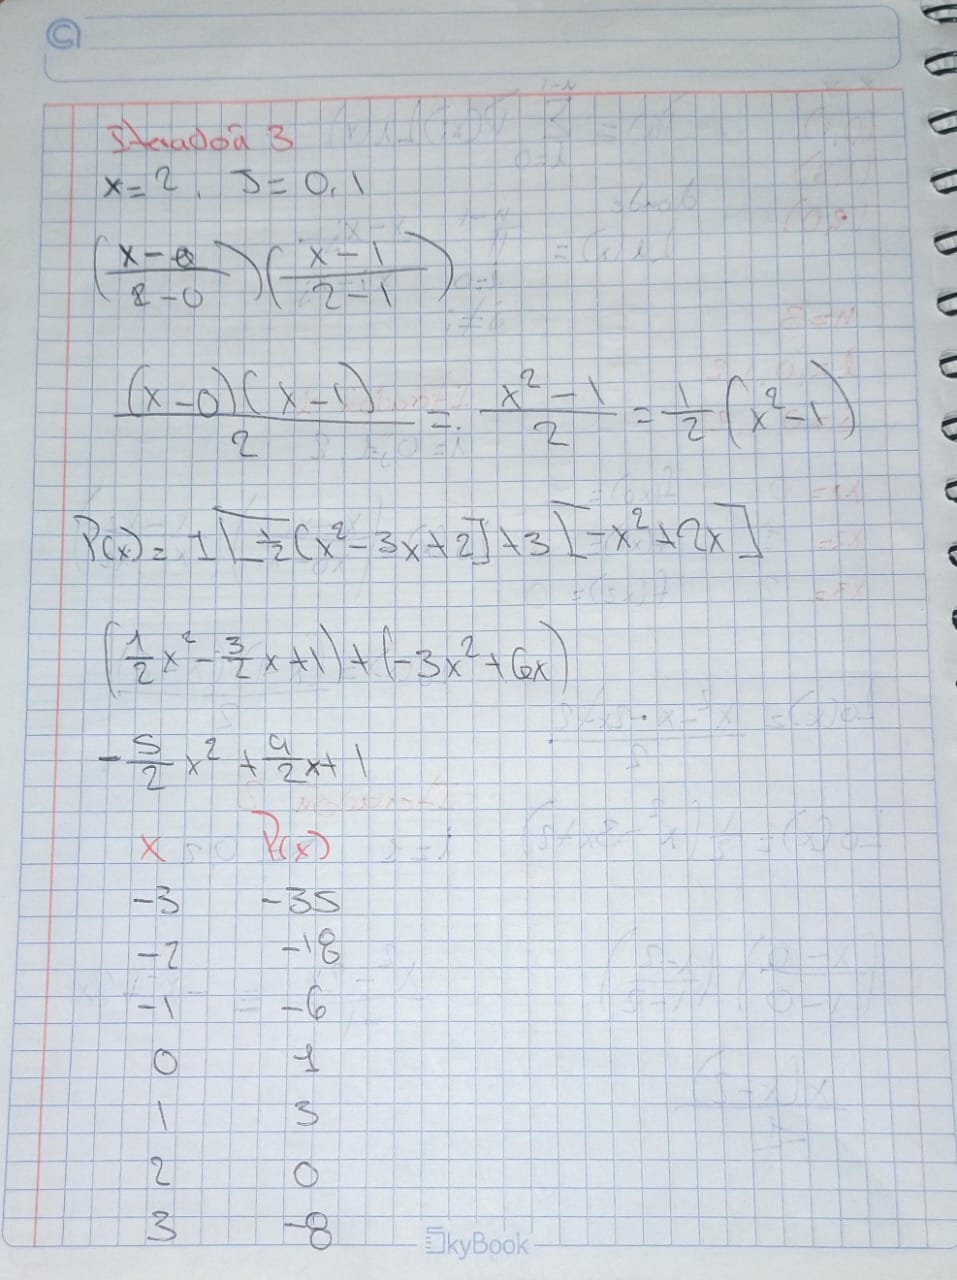 Iteración 3
x = 2, J = 0, 1
((x-0)/(2-0)) ((x-1)/(2-1))
(x-0)(x-1)/2 = (x²-1)/2 = 1/2 (x²-1)
P(x) = 1[1/2(x²-3x+2]+3[-x²+2x]
(1/2 x² - 3/2 x + 1) + (-3x² + 6x)
-5/2 x² + 9/2 x + 1
x P(x)
-3 -35
-2 -18
-1 -6
0 1
1 3
2 0
3 -8
SkyBook